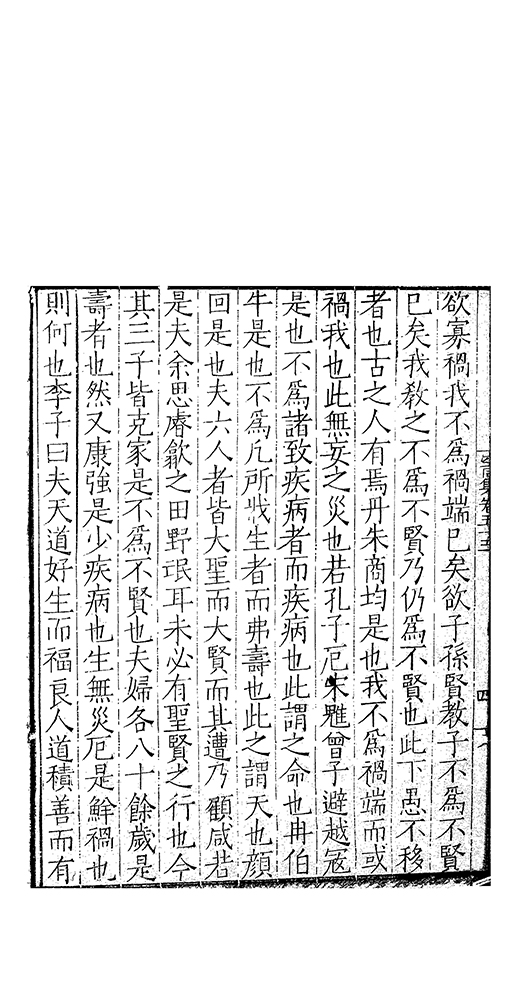 欲寡禍我不爲禍端已矣欲子孫賢教子不爲不賢
已矣我教之不爲不賢乃仍爲不賢也此下愚不移
者也古之人有焉丹朱商均是也我不爲禍端而或
禍我也此無妄之災也若孔子厄宋魋曾子避越寇
是也不爲諸致疾病者而疾病也此謂之命也冉伯
牛是也不爲凡所戕生者而弗壽也此之謂天也顔
回是也夫六人者皆大聖而大賢而其遭乃顧咸若
是夫余思庤歙之田野氓耳未必有聖賢之行也今
其三子皆克家是不爲不賢也夫婦各八十餘歲是
壽者也然又康強是少疾病也生無災厄是鮮禍也
則何也李子曰夫天道好生而福良人道積善而有
集卷五十五
四